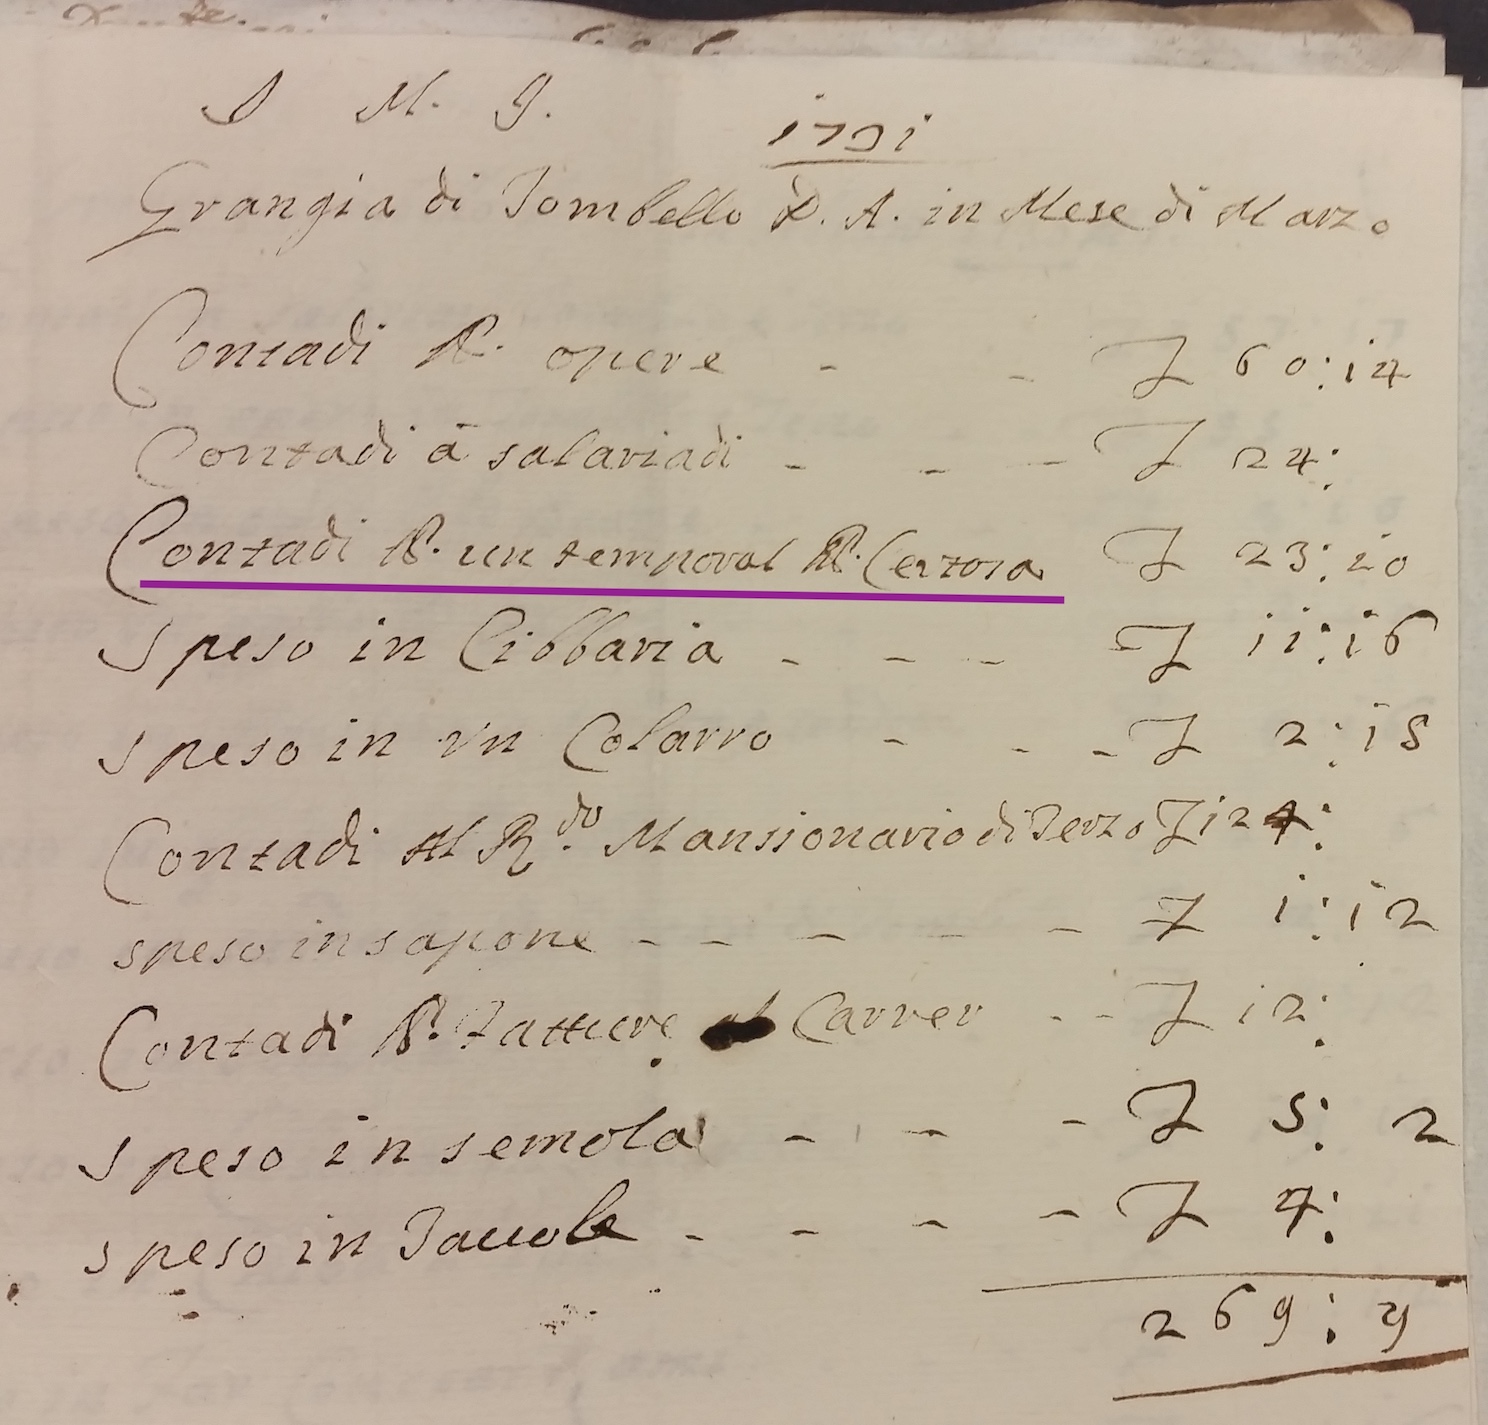 S M. G.
1731
Grangia di Tombello D. A. in Mese di Marzo
Contadi P. opere - - L 60:14
Contadi à salariadi - - - L 24:
Contadi P. un temporal P. Certosa L 23:10
Speso in Cibbaria - - - L 11:16
Speso in vn Colarro - - - L 2:15
Contadi Al R.do Mansionario di Terzo L 124:
speso in sapone - - - - - L 1:12
Contadi P. Fatture al Carrer - - L 12:
Speso in semola - - - L 5: 2
speso in Tavole - - - - L 4:
269:9